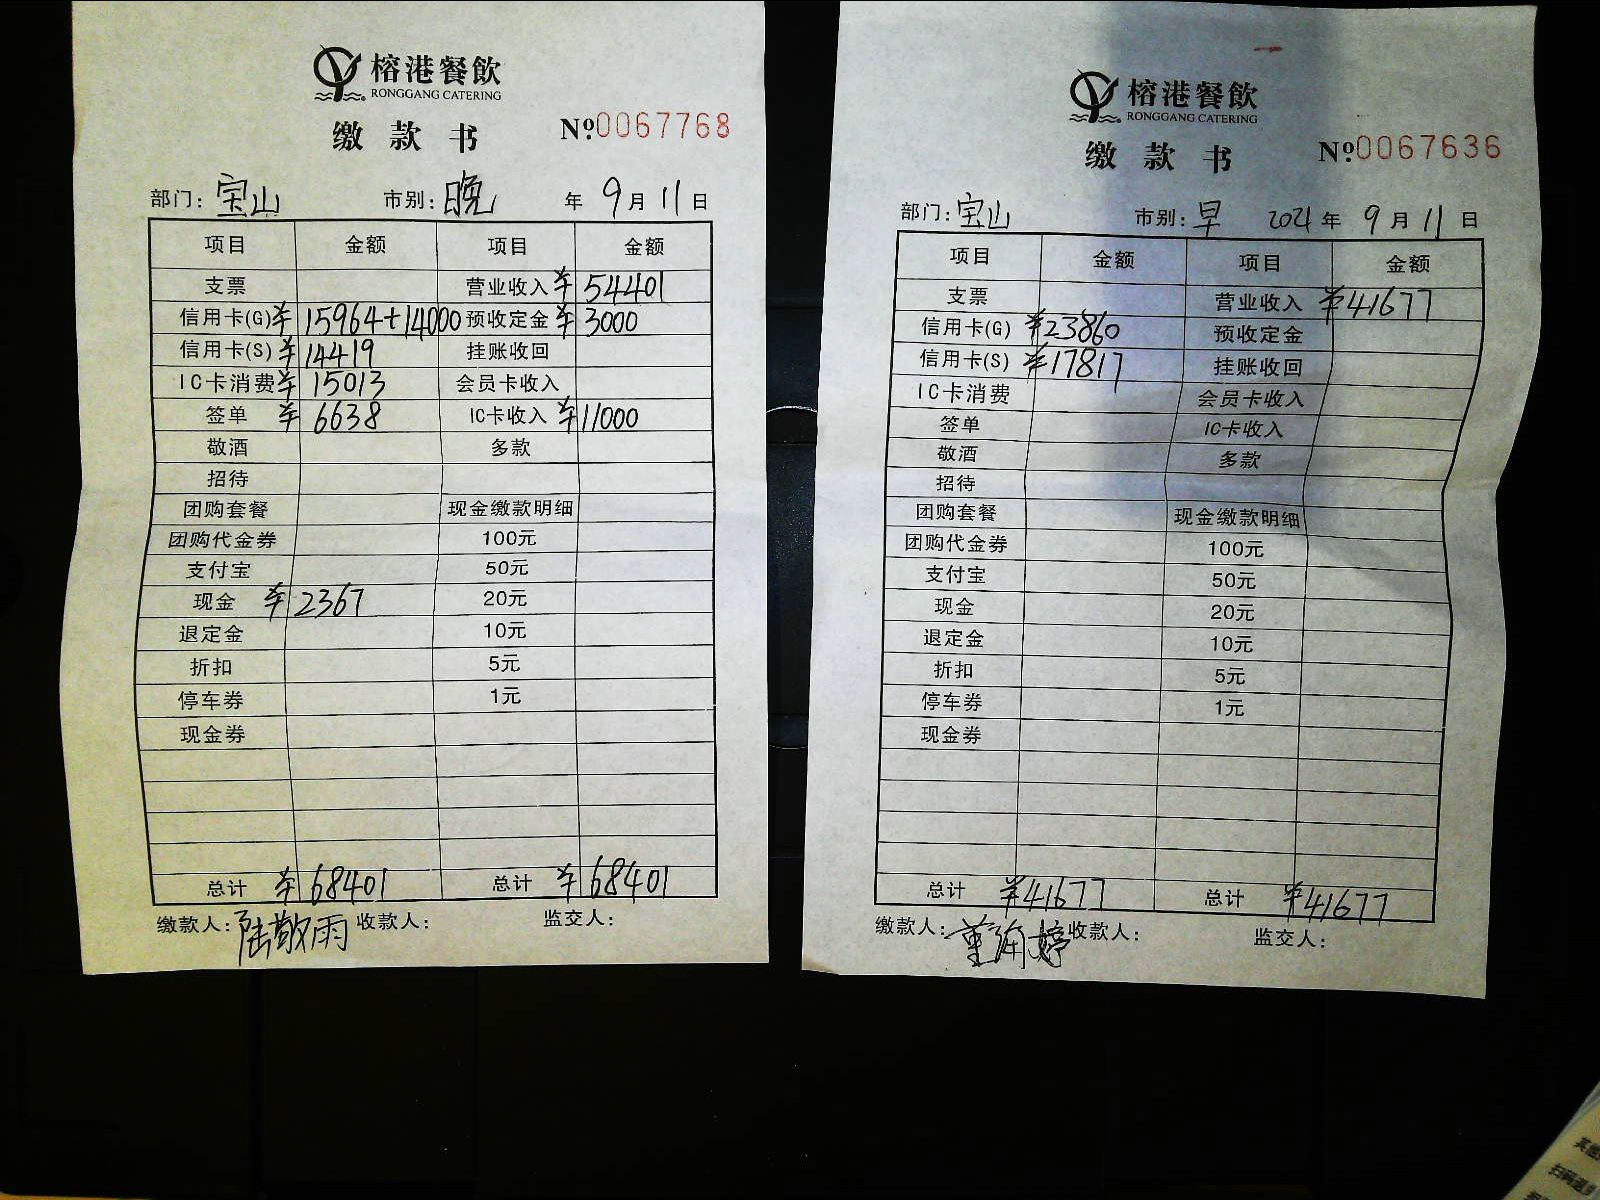 榕港餐飲
RONGGANG CATERING
缴款书 Nº0067768
部门：宝山 市别：晚 年 9月 11日
项目 金额 项目 金额
支票 营业收入 ¥54401
信用卡(G) ¥15964+14000 预收定金 ¥3000
信用卡(S) ¥14419 挂账收回
IC卡消费 ¥15013 会员卡收入
签单 ¥6638 IC卡收入 ¥11000
敬酒 多款
招待
团购套餐 现金缴款明细
团购代金券 100元
支付宝 50元
现金 ¥2367 20元
退定金 10元
折扣 5元
停车券 1元
现金券
总计 ¥68401 总计 ¥68401
缴款人：陆敬雨 收款人： 监交人：
榕港餐飲
RONGGANG CATERING
缴款书 Nº0067636
部门：宝山 市别：早 2021年 9月 11日
项目 金额 项目 金额
支票 营业收入 ¥41677
信用卡(G) ¥23860 预收定金
信用卡(S) ¥17817 挂账收回
IC卡消费 会员卡收入
签单 IC卡收入
敬酒 多款
招待
团购套餐 现金缴款明细
团购代金券 100元
支付宝 50元
现金 20元
退定金 10元
折扣 5元
停车券 1元
现金券
总计 ¥41677 总计 ¥41677
缴款人： 收款人： 监交人：